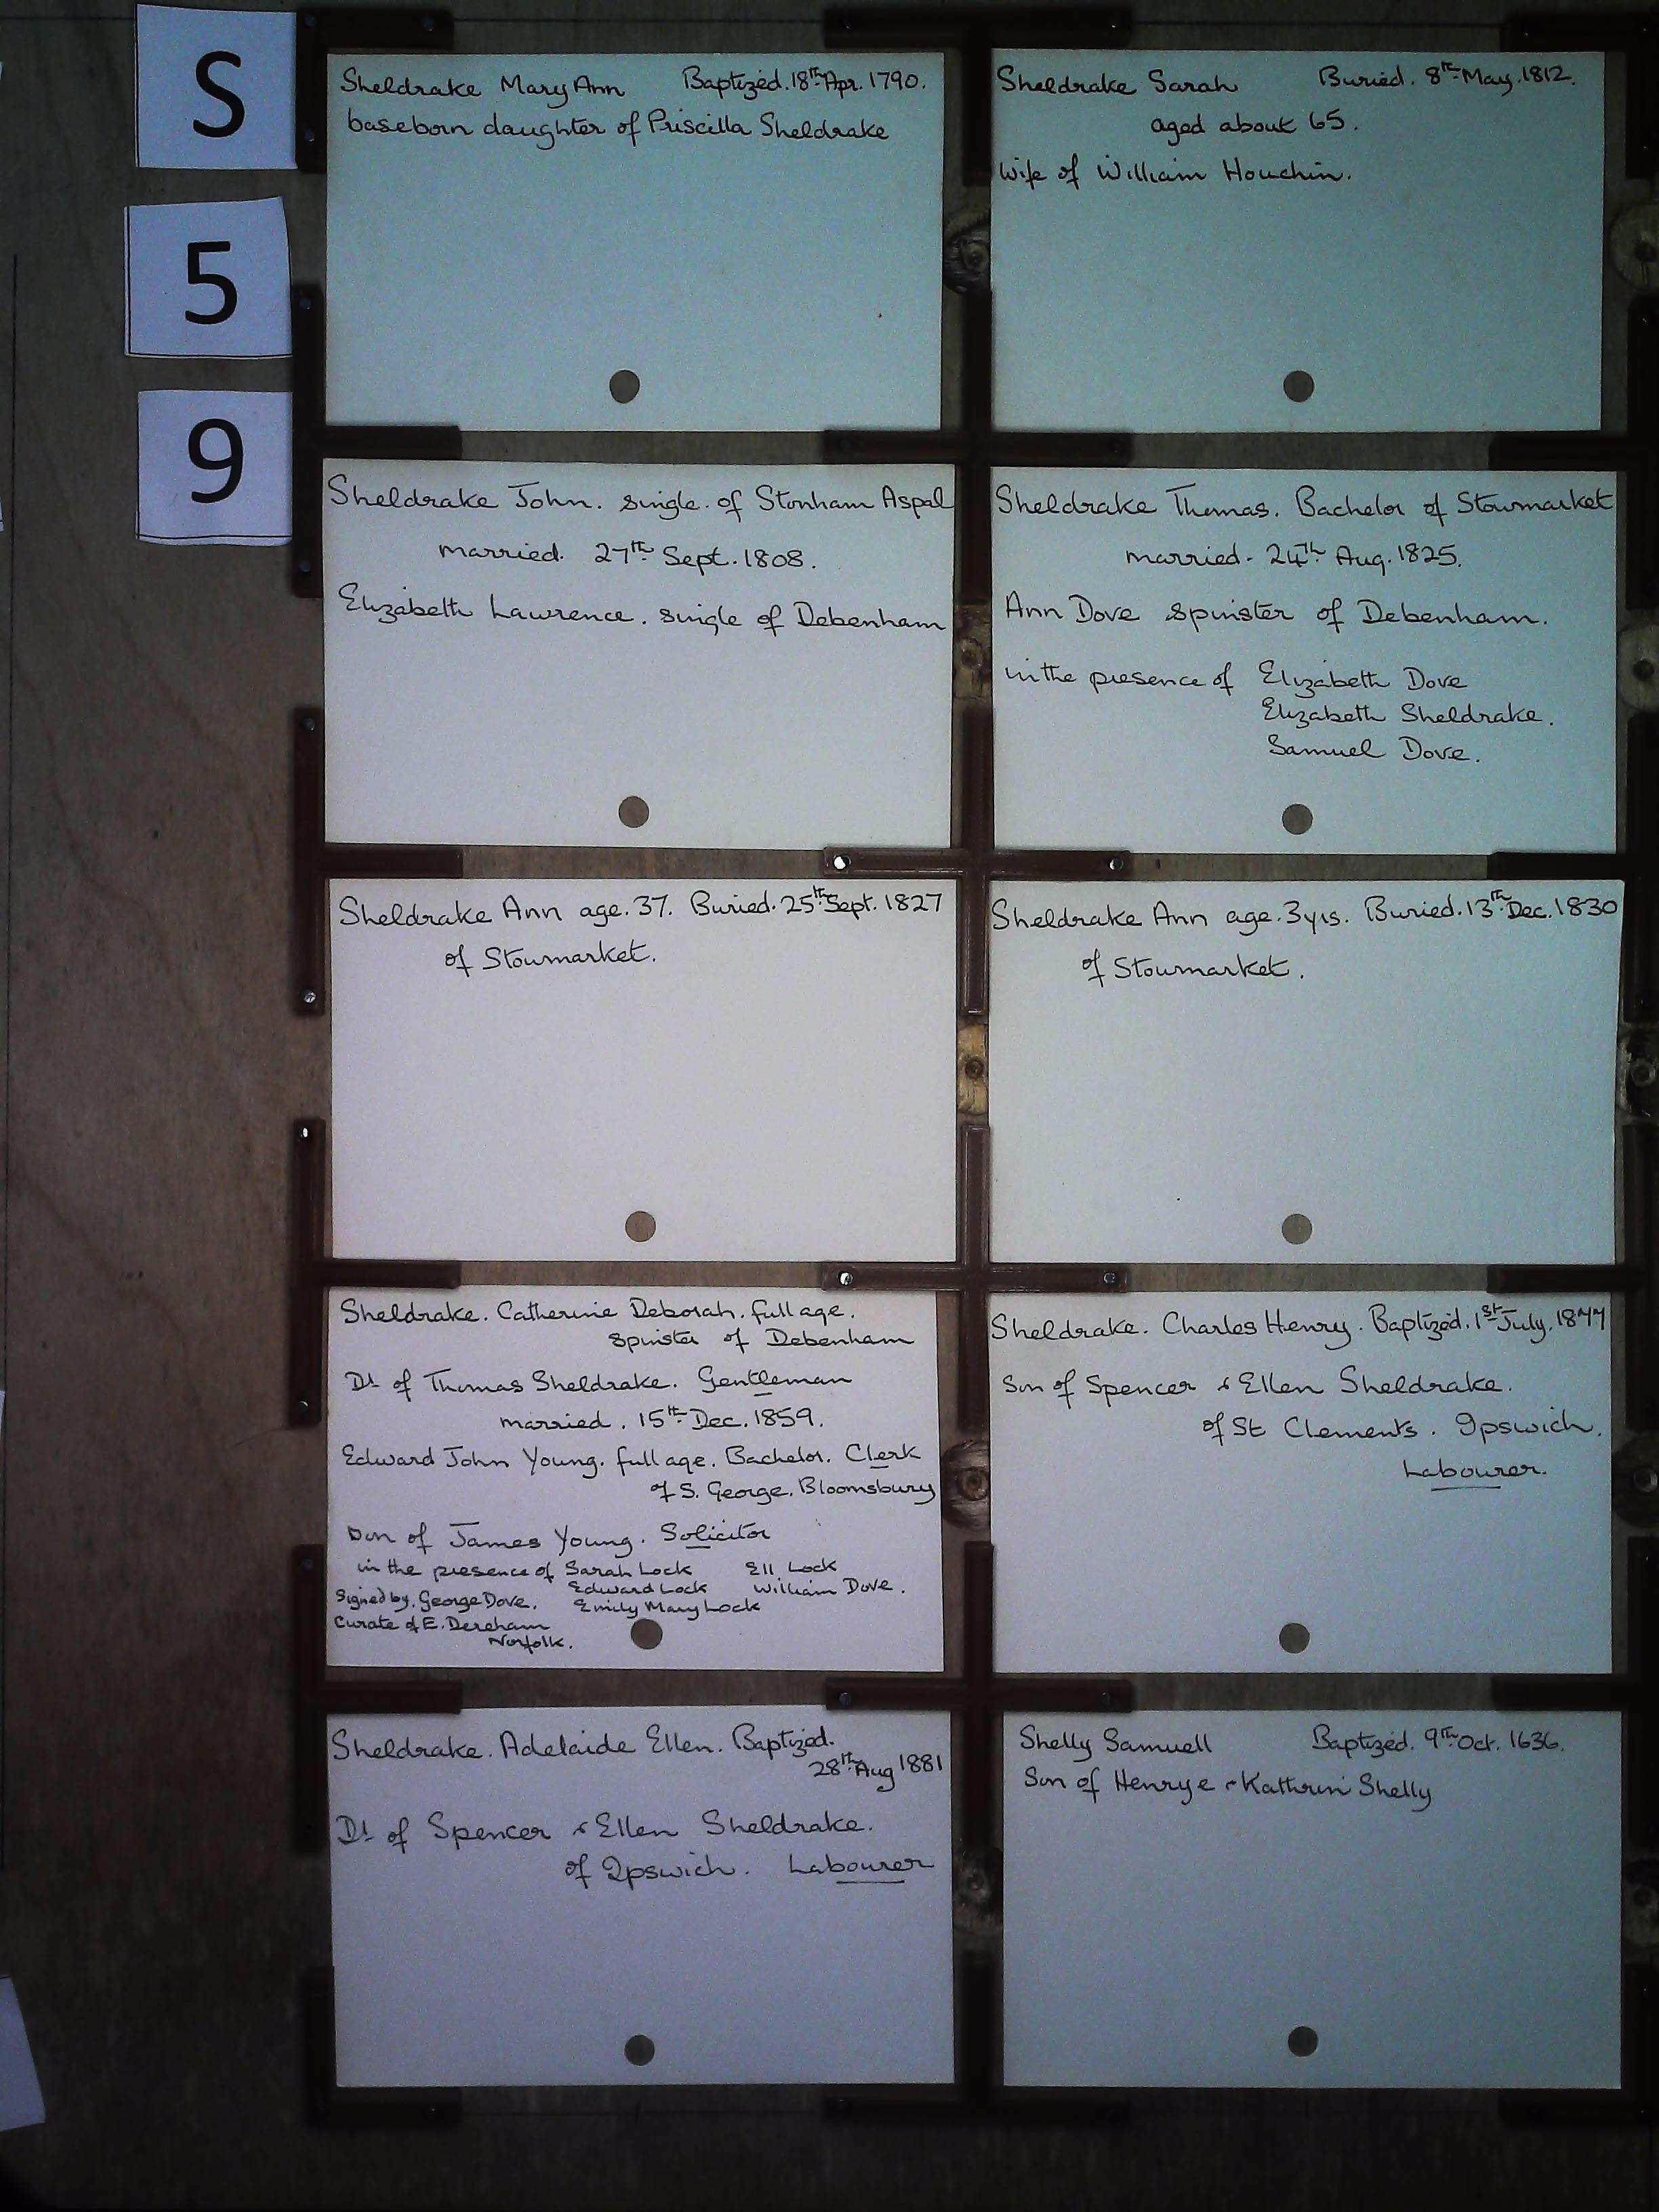 S
5
9
Sheldrake Mary Ann Baptized. 18th Apr. 1790.
baseborn daughter of Priscilla Sheldrake
Sheldrake Sarah Buried. 8th May. 1812.
aged about 65.
Wife of William Houchin.
Sheldrake John. single. of Stonham Aspal
married. 27th Sept. 1808.
Elizabeth Lawrence. single of Debenham
Sheldrake Thomas. Bachelor of Stowmarket
married. 24th Aug. 1825.
Ann Dove spinster of Debenham.
in the presence of Elizabeth Dove
Elizabeth Sheldrake.
Samuel Dove.
Sheldrake Ann age. 37. Buried. 25th Sept. 1827
of Stowmarket.
Sheldrake Ann age. 3 yrs. Buried. 13th Dec. 1830
of Stowmarket.
Sheldrake. Catherine Deborah. full age.
spinster of Debenham
Dt of Thomas Sheldrake. Gentleman
married. 15th Dec. 1859.
Edward John Young. full age. Bachelor. Clerk
of S. George. Bloomsbury
Son of James Young. Solicitor
in the presence of Sarah Lock Ell Lock
Edward Lock William Dove.
Signed by. George Dove. Emily Mary Lock
Curate of E. Dereham
Norfolk.
Sheldrake. Charles Henry. Baptized. 1st July. 1877
Son of Spencer & Ellen Sheldrake.
of St Clements. Ipswich.
Labourer.
Sheldrake. Adelaide Ellen. Baptized.
28th Aug 1881
Dt of Spencer & Ellen Sheldrake.
of Ipswich. Labourer
Shelly Samuell Baptized. 9th Oct. 1636.
Son of Henrye & Kathrin Shelly